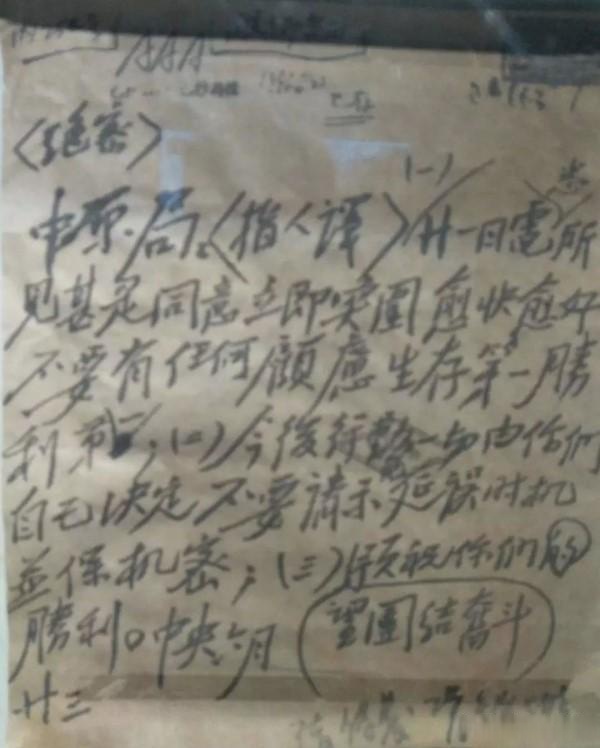 〈絕密〉
中原局〈指人譯〉(一)廿一日電所
見甚是同意立即突圍愈快愈好
不要有任何顧慮生存第一勝
利第二;(二)今後行動一切由你們
自己決定不要請示延誤时机
並保机密;(三)預祝你們的
勝利。中央六月
望團結奮斗
廿三